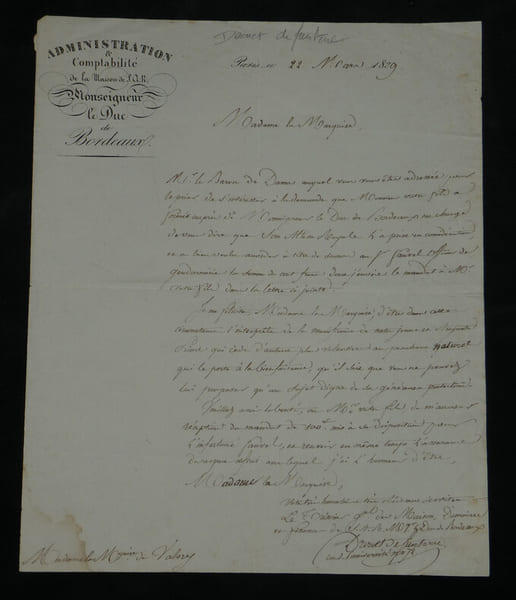 ADMINISTRATION
&
Comptabilité
de la Maison de S.A.R.
Monseigneur
le Duc
de
Bordeaux.
Paris, ce 22 Mars 1829
Madame la Marquise,
Mr. le Baron de Damas auquel vous vous êtes adressée pour
le prier de s'intéresser à la demande que Monsieur votre fils a
formée auprès de Monseigneur le Duc de Bordeaux, me charge
de vous dire que Son Altesse Royale l'a prise en considération
et a bien voulu accorder à titre de secours au Sr. Officier de
gendarmerie la somme de cent francs dont j'envoie le mandat à Mr.
votre fils dans la lettre ci jointe.
Je me félicite, Madame la Marquise, d'être dans cette
circonstance l'interprète de la munificence de notre jeune et Auguste
Prince qui cède d'autant plus volontiers au penchant naturel
qui le porte à la bienfaisance, qu'il sait que vous ne pouvez
lui proposer qu'un sujet digne de sa généreuse protection.
Veuillez avoir la bonté, ou Mr. votre fils, de m'accuser
réception du mandat de 100f. mis à sa disposition pour
l'infortuné et recevoir en même temps l'assurance
du respect avec lequel j'ai l'honneur d'être,
Madame la Marquise,
votre très humble et très obéissant serviteur
Le Trésorier de la Maison
de S.A.R. Mgr. le Duc de Bordeaux
Madame la Mquise de